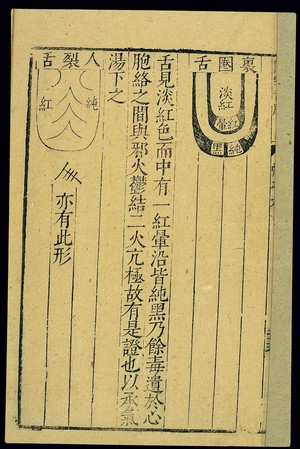 裏圈舌
淡紅
紅暈
純黑
舌見淡紅色而中有一紅暈沿皆純黑乃餘毒遺於心
胞絡之間與邪火鬱結二火亢極故有是證也以承氣
湯下之
人裂舌
純紅
亦有此形